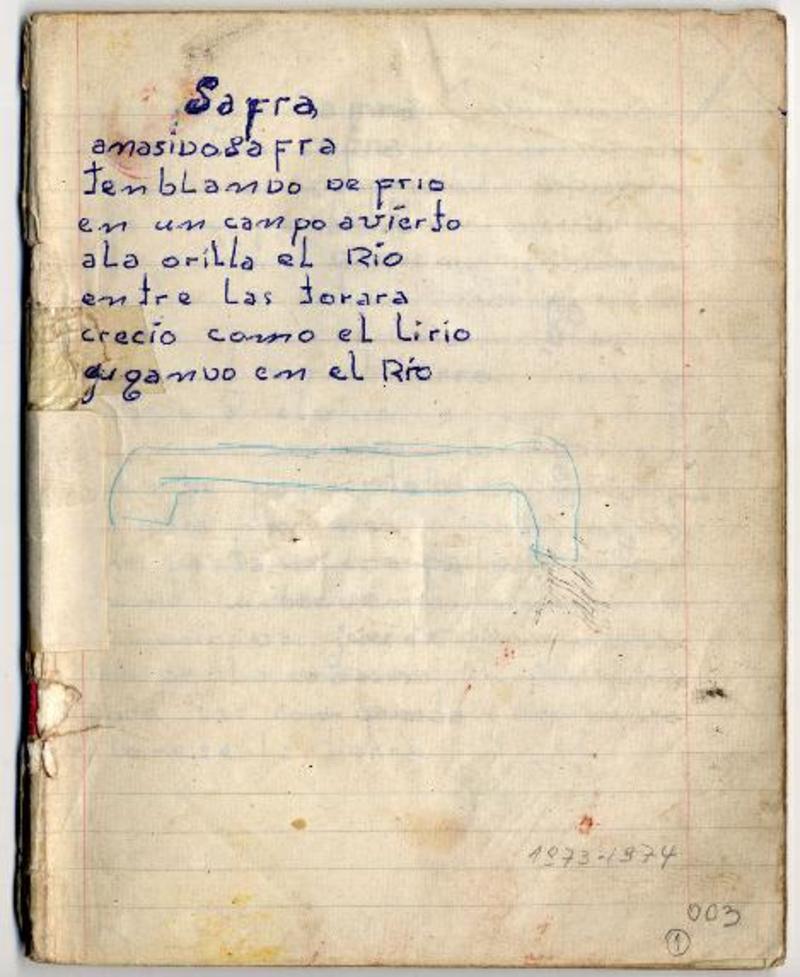 Safra,
a nasivo Safra
tenblanvo ve frio
en un canpo avierto
ala orilla el Rio
entre las torara
crecio como el lirio
guganvo en el Rio
1973-1974
003
1